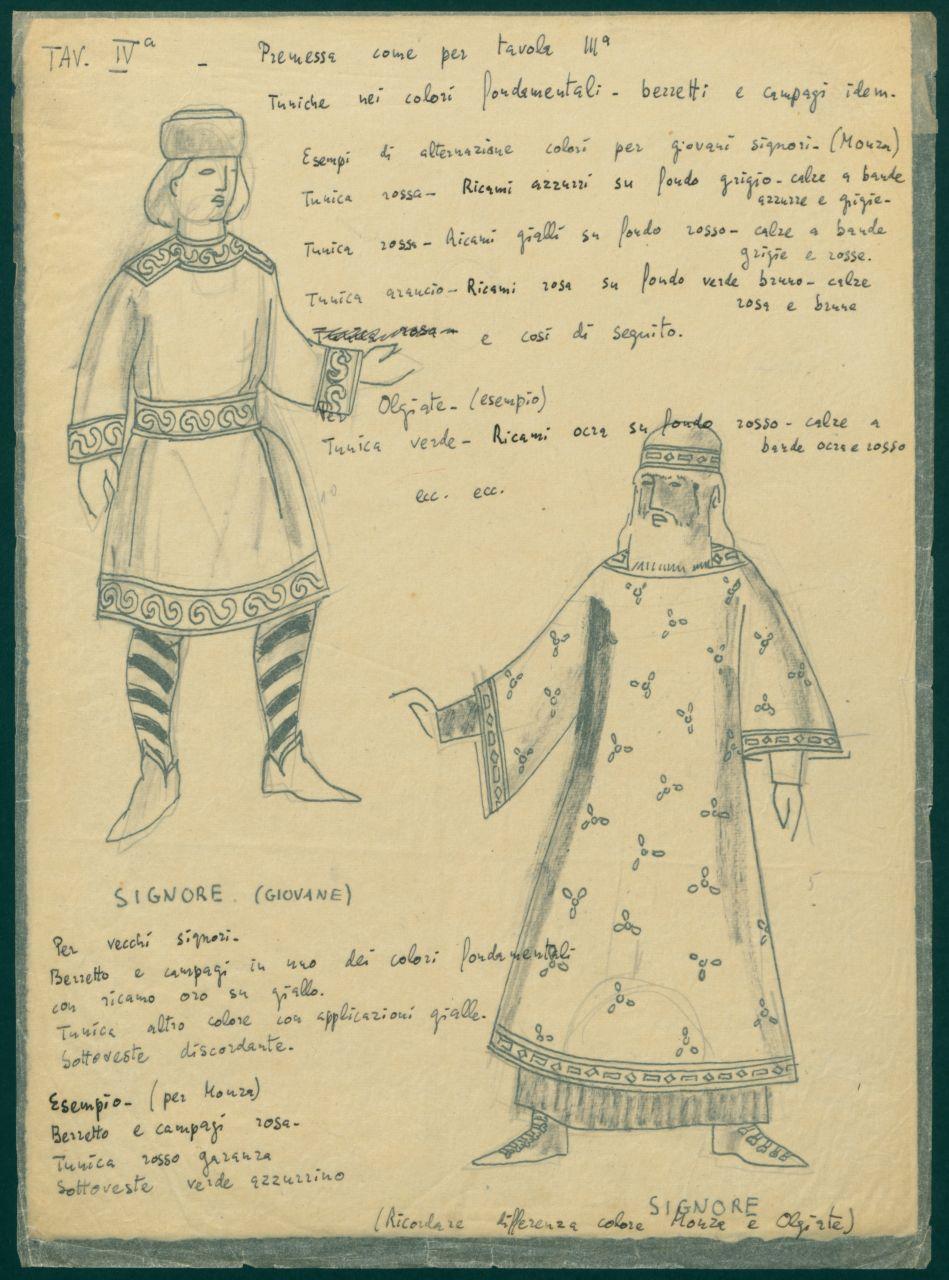 TAV. IVª - Premessa come per tavola IIIª
Tuniche nei colori fondamentali - berretti e campagi idem.
Esempi di alternazione colori per giovani signori - (Monza)
Tunica rossa - Ricami azzurri su fondo grigio - calze a bande
azzurre e grigie -
Tunica rossa - Ricami gialli su fondo rosso - calze a bande
grigie e rosse.
Tunica arancio - Ricami rosa su fondo verde bruno - calze
rosa e brune
Tunica rosa -
e così di seguito.
Per Olgiate - (esempio)
Tunica verde - Ricami ocra su fondo rosso - calze a
bande ocra e rosso
ecc. ecc.
SIGNORE (GIOVANE)
Per vecchi signori -
Berretto e campagi in uno dei colori fondamentali
con ricamo oro su giallo.
Tunica altro colore con applicazioni gialle.
Sottoveste discordante.
Esempio - (per Monza)
Berretto e campagi rosa -
Tunica rosso garanza
Sottoveste verde azzurrino
SIGNORE
(Ricordare differenza colore Monza e Olgiate)